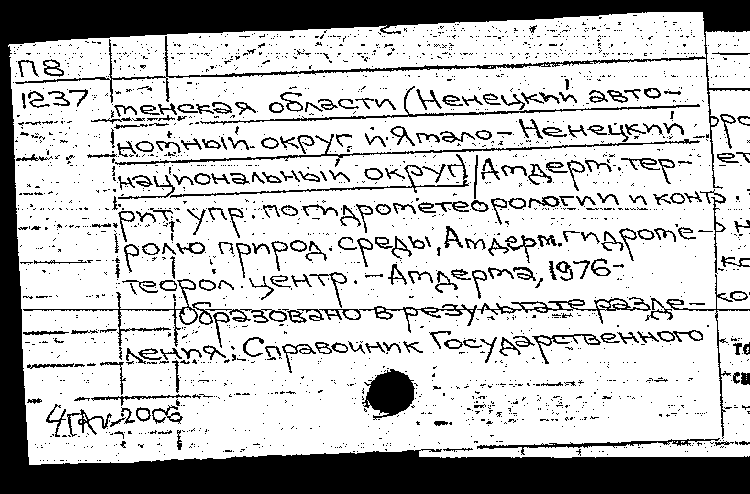 П8
1237
менская области (Ненецкий авто-
номный округ и Ямало-Ненецкий
национальный округ) / Амдерм. тер-
рит. упр. по гидрометеорологии и конт-
ролю природ. среды, Амдерм. гидроме-
теорол. центр. - Амдерма, 1976-
Образовано в результате разде-
ления: Справочник Государственного
2006